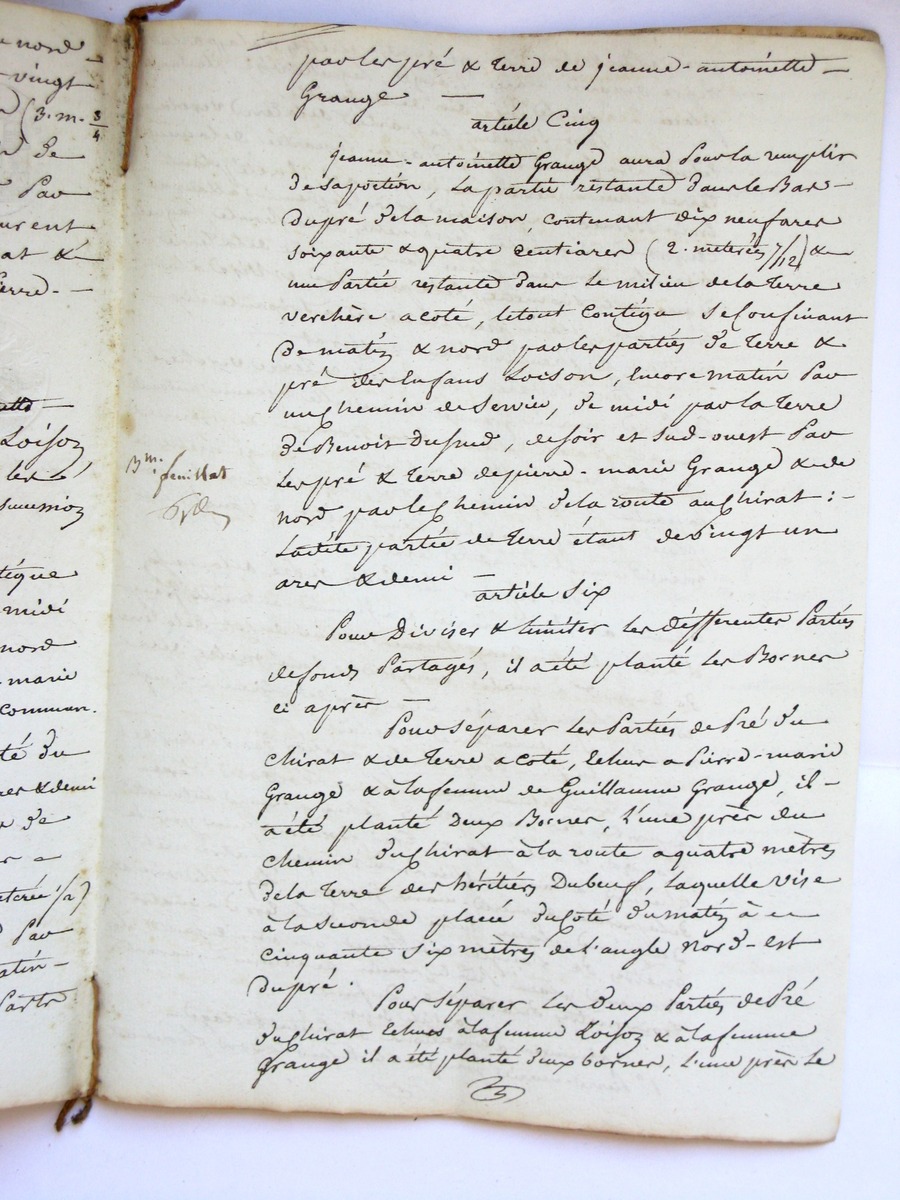 nord
vingt
(3. m. 3/4
de
Par
urent
at &
erre. -
Loison
les
sucession
tique
midi
nord
marie
comman.
té du
res & demi
de
Par
matin -
Partr
par les pré & terre de jeanne-antoinette -
Grange —
article Cinq
jeanne-antoinette Grange aura Pour la remplir
de sa portion, la partie restante dans le Bas -
Du pré de la maison, contenant dix neuf ares
soixante & quatre centiares (2. meterées 7/12) &
une Partie restante dans le milieu de la terre
verchère a coté, le tout contigu se Confinant
De matin & nord par les parties de terre &
pré des Enfans Loison, Encore matin Par
un Chemin de Servin, de midi par la terre
de Benoit Dusud, de soir et sud-ouest Par
les pré & terre de pierre-marie Grange & de
nord par le Chemin de la route au Chirat : -
Ladite partie de terre étant de vingt un
ares & demi —
3m.
feuillet
article Six
Pour Diviser & limiter les différentes Parties
de fonds Partagés, il a été planté les Bornes
ci après —
Pour séparer les Parties de Pré du
Chirat & de terre a coté, Echus a Pierre-marie
Grange & à la femme de Guillaume Grange, il -
a été planté Deux Bornes, l'une près du
Chemin du Chirat à la route a quatre mètres
de la terre des héritiers Dubeuf, laquelle vise
à la seconde placée du Coté du matin à
cinquante six mètres de l'angle nord-est
du pré.
Pour séparer les deux Parties de Pré
du Chirat Echues à la femme Loison & à la femme
Grange il a été planté deux bornes, l'une près le